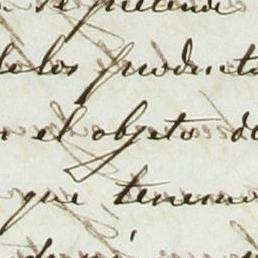 se pretende
de los producto
el objeto de
que tenemo